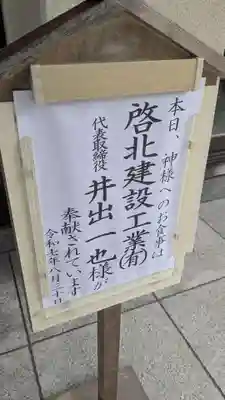 本日、神様へのお食事は
啓北建設工業㈲
代表取締役 井出一也様が
奉献されています
令和七年八月三十日